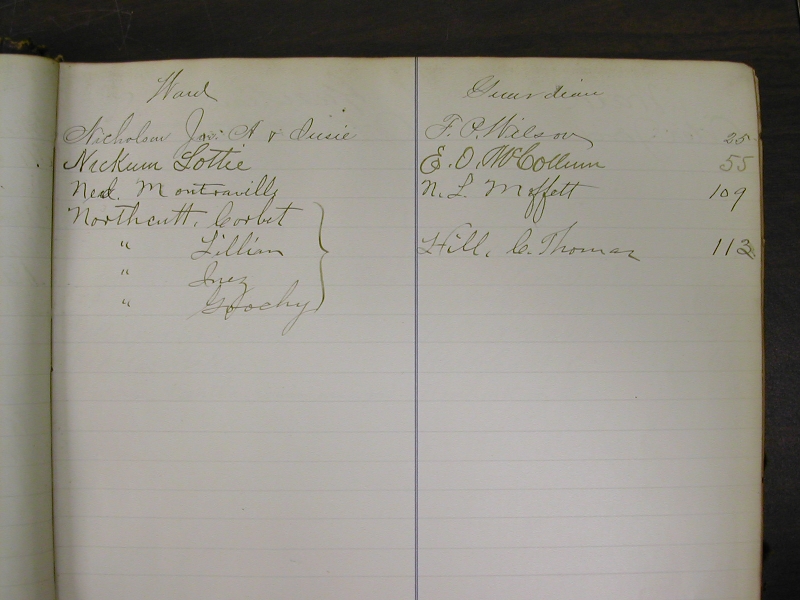 Ward Guardian
Nicholson Jno. A & Susie F. P. Wilson 25
Nickum Lottie E. O. McCollum 55
Neal. Montraville N. L. Moffett 109
Northcutt, Corbet
" Lillian Hill, C. Thomas 113
" Inez
"